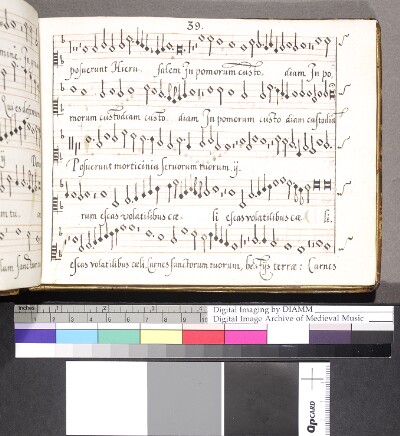 39.
posuerunt Hieru. salem In pomorum custo. diam In po.
morum custodiam custo. diam In pomorum custo diam custodiā
Posuerunt morticinia seruorum tuorum ij.
rum escas volatilibus cæ. li escas volatilibus cæ li.
escas volatilibus cæli. Carnes sanctorum tuorum, bestijs terræ: Carnes
inches
Digital Imaging by DIAMM
Digital Image Archive of Medieval Music
QPCARD